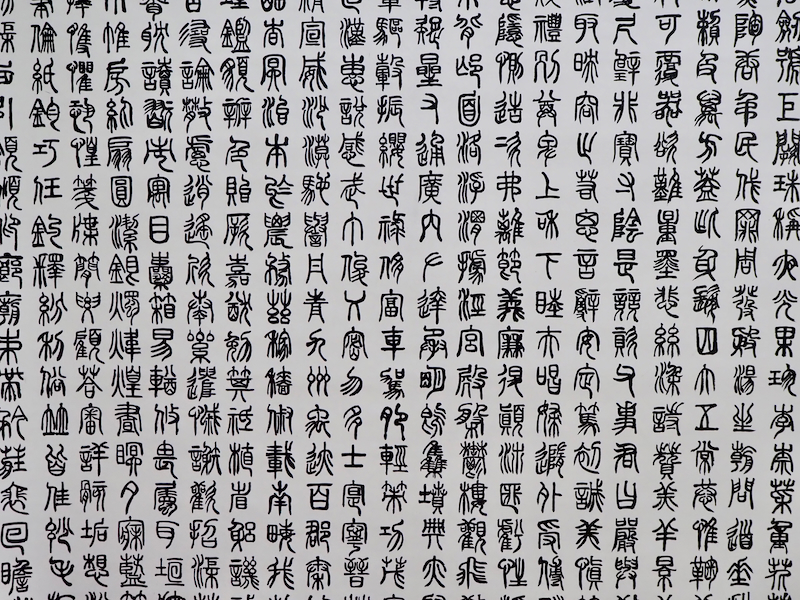 劍號巨闕珠稱夜光果珍李柰菜重芥
陶唐弔民伐罪周發殷湯坐朝問道垂
賴及萬方蓋此身髮四大五常恭惟鞠
可覆器欲難量墨悲絲染詩讚羔羊景
尺璧非寶寸陰是競資父事君曰嚴與
取映容止若思言辭安定篤初誠美慎
禮別尊卑上和下睦夫唱婦隨外受傅
隱惻造次弗離節義廉退顛沛匪虧性
背邙面洛浮渭據涇宮殿盤鬱樓觀飛
疑星右通廣內左達承明既集墳典亦
驅轂振纓世祿侈富車駕肥輕策功茂
漢惠說感武丁俊乂密勿多士寔寧晉
宣威沙漠馳譽丹青九州禹跡百郡秦
杳冥治本於農務茲稼穡俶載南畝我
鑑貌辨色貽厥嘉猷勉其祗植省躬譏
尋論散慮逍遙欣奏累遣慼謝歡招渠
耽讀翫市寓目囊箱易輶攸畏屬耳垣
帷房紈扇圓潔銀燭煒煌晝眠夕寐藍
悚懼恐惶牋牒簡要顧答審詳骸垢想
倫紙鈞巧任釣釋紛利俗並皆佳妙毛
矩步引領俯仰廊廟束帶矜莊徘徊瞻